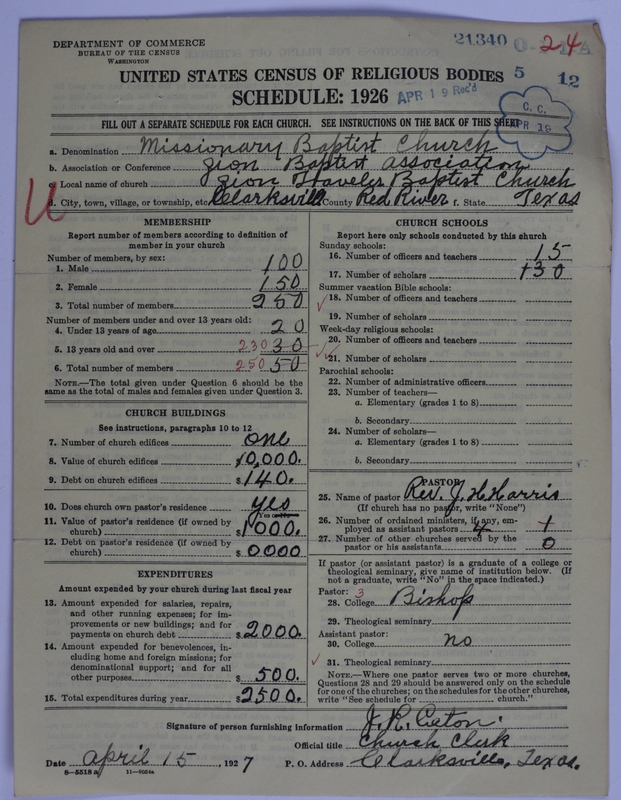 DEPARTMENT OF COMMERCE
BUREAU OF THE CENSUS
WASHINGTON
21340 0- 24
UNITED STATES CENSUS OF RELIGIOUS BODIES 5 12
SCHEDULE: 1926 APR 19 Rec'd
C. C.
APR 16
FILL OUT A SEPARATE SCHEDULE FOR EACH CHURCH. SEE INSTRUCTIONS ON THE BACK OF THIS SHEET
a. Denomination Missionary Baptist Church
b. Association or Conference Zion Baptist association
c. Local name of church Zion Traveler Baptist Church
d. City, town, village, or township, etc. Clarksvill e. County Red River f. State Texas
MEMBERSHIP
Report number of members according to definition of
member in your church
Number of members, by sex:
1. Male 100
2. Female 150
3. Total number of members 250
Number of members under and over 13 years old:
4. Under 13 years of age 20
5. 13 years old and over 230 30
6. Total number of members 250 50
NOTE.—The total given under Question 6 should be the
same as the total of males and females given under Question 3.
CHURCH BUILDINGS
See instructions, paragraphs 10 to 12
7. Number of church edifices one
8. Value of church edifices $10,000.
9. Debt on church edifices $140.
10. Does church own pastor's residence yes
Yes or No
11. Value of pastor's residence (if owned by
church) $1000.
12. Debt on pastor's residence (if owned by
church) $0000
EXPENDITURES
Amount expended by your church during last fiscal year
13. Amount expended for salaries, repairs,
and other running expenses; for im-
provements or new buildings; and for
payments on church debt $2000.
14. Amount expended for benevolences, in-
cluding home and foreign missions; for
denominational support; and for all
other purposes $500.
15. Total expenditures during year $2500.
CHURCH SCHOOLS
Report here only schools conducted by this church
Sunday schools:
16. Number of officers and teachers 15
17. Number of scholars 130
Summer vacation Bible schools:
18. Number of officers and teachers
19. Number of scholars
Week-day religious schools:
20. Number of officers and teachers
21. Number of scholars
Parochial schools:
22. Number of administrative officers
23. Number of teachers—
a. Elementary (grades 1 to 8)
b. Secondary
24. Number of scholars—
a. Elementary (grades 1 to 8)
b. Secondary
PASTOR
25. Name of pastor Rev. J. H. Harris
(If church has no pastor, write "None")
26. Number of ordained ministers, if any, em-
ployed as assistant pastors 4 1
27. Number of other churches served by the
pastor or his assistants 0
If pastor (or assistant pastor) is a graduate of a college or
theological seminary, give name of institution below. (If
not a graduate, write "No" in the space indicated.)
Pastor: 3
28. College Bishop
29. Theological seminary
Assistant pastor:
30. College no
31. Theological seminary
NOTE.—Where one pastor serves two or more churches,
Questions 28 and 29 should be answered only on the schedule
for one of the churches; on the schedules for the other churches,
write "See schedule for church."
Signature of person furnishing information J. R. Ceton.
Official title Church Clerk
Date april 15, 1927 P. O. Address Clarksville, Texas.
8—5518 a 11—9054a